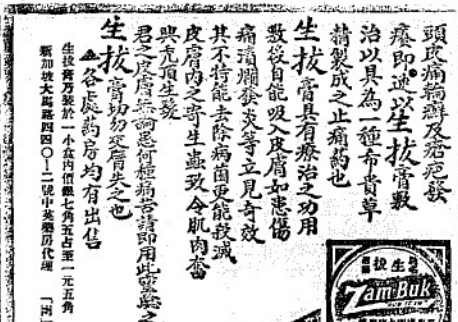 頭皮痛輪癬及瘡疤發
癢即速以生拔膏敷
治以其為一種希貴草
精製成之止痛药也
生拔膏具有療治之功用
敷後自能吸入皮膚如患傷
痛潰爛發炎等立見奇效
其不特能去除病菌更能殺滅
皮膚內之寄生蟲致令肌肉奮
興禿頂生髮
君之皮膚無論患何種病苦請即用此靈藥之
生拔膏切勿交臂失之也
各處药房均有出售
生拔膏乃裝於一小盒內價銀七角五占至一元五角
新加坡大馬路四四〇—二號中英藥房代理
生拔
Zam-Buk